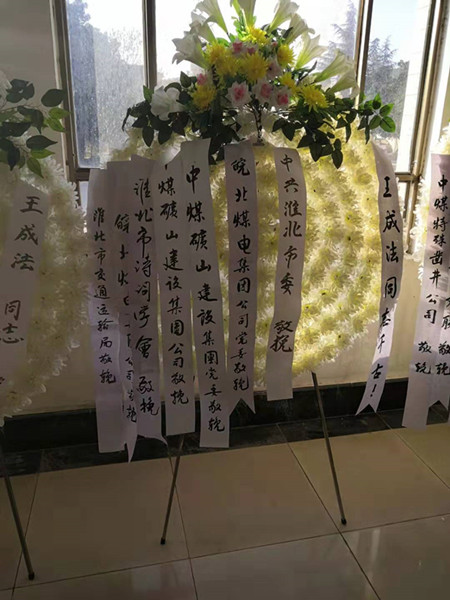 王成法 同志
淮北市交通运输局敬挽
淮北市诗词学会敬挽
中煤矿山建设集团公司敬挽
中煤矿山建设集团党委敬挽
皖北煤电集团公司党委敬挽
中共淮北市委 敬挽
王成法同志
中煤特殊凿井公司 敬挽
敬挽